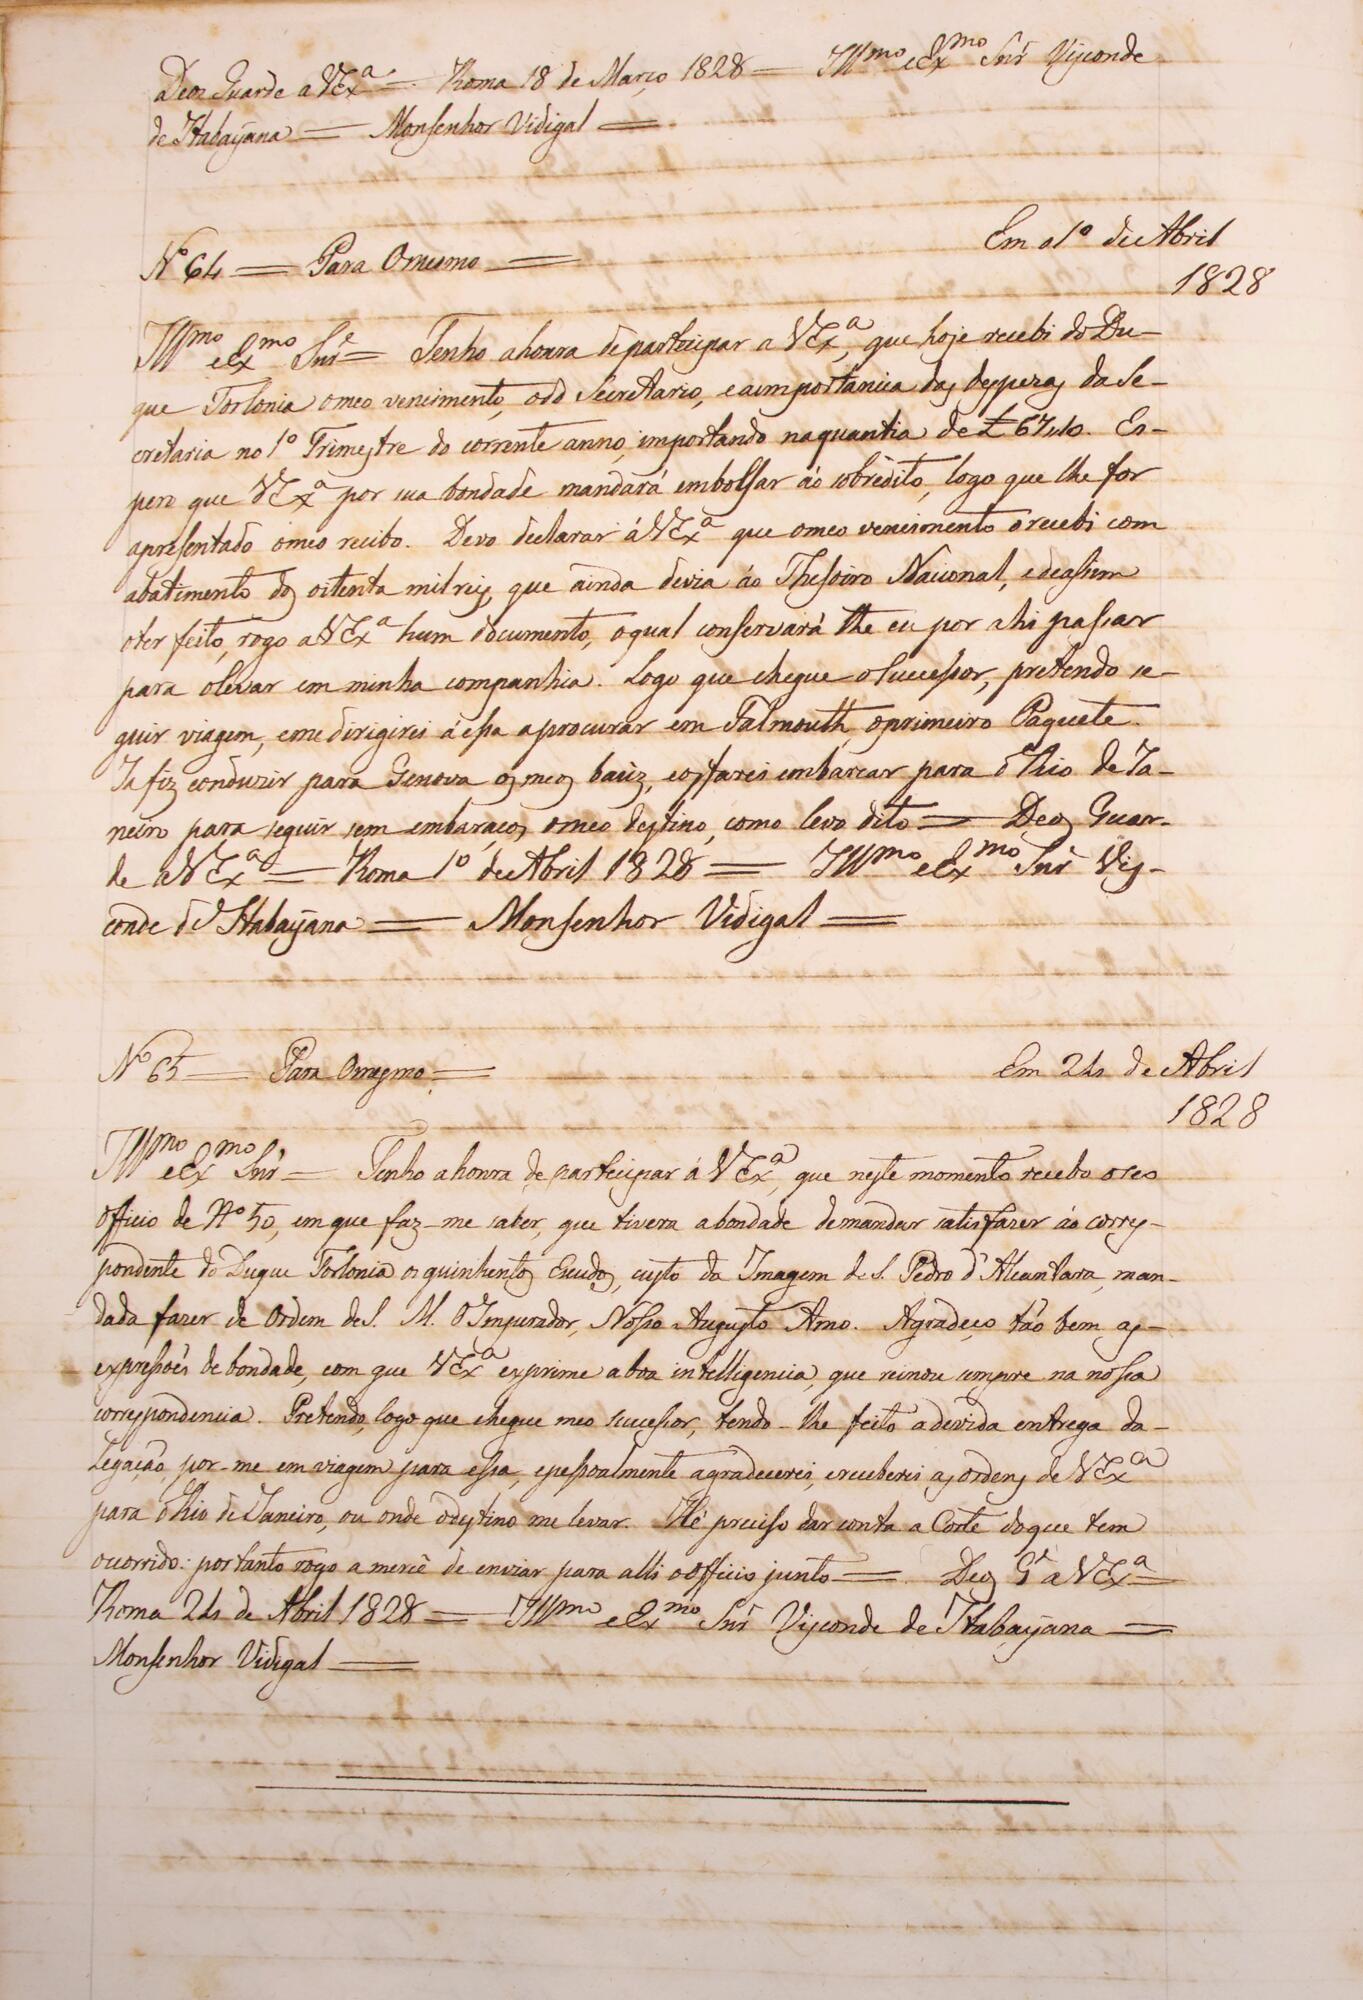 Deos Guarde a VExª = Roma 18 de Março 1828 = Illmo e Exmo Snr Visconde
de Itabayana = Monsenhor Vidigal =
Nº 64 = Para O mesmo =
Em o 1º de Abril
1828
Illmo e Exmo Snr = Tenho a honra de participar a VExª, que hoje recebi do Du-
que Torlonia o meo vencimento, o do Secretario, e a importancia das despezas da Se-
cretaria no 1º Trimestre do corrente anno, importando na quantia de £
Es-
pero que VExª por sua bondade mandará embolsar áo sobredito, logo que lhe for
apresentado o meo recibo. Devo declarar á VExª que o meo vencimento o recebi com
abatimento dos oitenta mil reis, que ainda devia áo Thesoiro Nacional, e de assim
o ter feito, rogo a VExª hum documento, o qual conservará lhe eu por ahi passar
para o levar em minha companhia. Logo que chegue o Successor, pretendo se-
guir viagem, e me dirigirei á essa a procurar em Falmouth o primeiro Paquete.
Ja fiz conduzir para Genova os meos baûz, e os farei embarcar para o Rio de Ja-
neiro para seguir sem embaraços o meo destino, como levo dito = Deos Guar-
de a VExª = Roma 1º de Abril 1828 = Illmo e Exmo Snr Vis-
conde de Itabayana = Monsenhor Vidigal =
Nº 65 = Para O mesmo =
Em 24 de Abril
1828
Illmo e Exmo Snr = Tenho a honra de participar á VExª, que neste momento recebo o seo
officio de Nº 50, em que faz-me saber, que tivera a bondade de mandar satisfazer áo corres-
pondente do Duque Torlonia os quinhentos Escudos, custo da Imagem de S. Pedro d'Alcantara, man-
dada fazer de Ordem de S. M. O Imperador, Nosso Augusto Amo. Agradeço tão bem as
expressoês de bondade, com que VExª exprime a boa intelligencia, que reinou sempre na nossa
correspondencia. Pretendo, logo que chegue meo successor, tendo-lhe feito a devida entrega da
Legação, por-me em viagem para essa, e pessoalmente agradecerei, e receberei as ordens de VExª
para o Rio de Janeiro, ou onde o destino me levar. Hé preciso dar conta a Corte do que tem
ocorrido: portanto rogo a mercê de enviar para alli o Officio junto = Deos Gde a VExª =
Roma 24 de Abril 1828 = Illmo e Exmo Snr Visconde de Itabayana =
Monsenhor Vidigal =